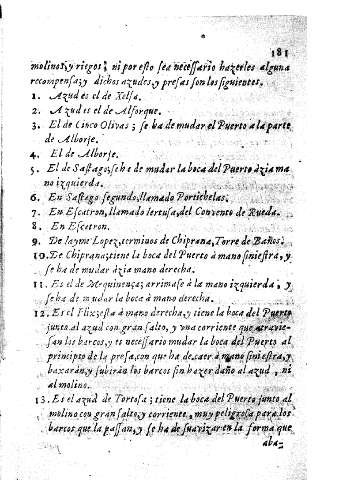 181
molinos, y riegos, ni por esto sea necessario hazerles alguna
recompensa; y dichos azudes, y presas son los siguientes.
1. Azud es el de Xelsa.
2. Azud es el de Alforque.
3. El de Cinco Olivas; se ba de mudar el Puerto a la parte
de Alborje.
4. El de Alborje.
5. El de Sastago, se há de mudar la boca del Puerto àzia ma
no izquierda.
6. En Sastago segundo, llamado Portichelas.
7. En Escatron, llamado Iertusa, del Convento de Rueda.
8. En Escatron.
9. De Iayme Lopez, terminos de Chiprana, Torre de Baños.
10. De Chiprana; tiene la boca del Puerto à mano siniestra, y
se ba de mudar àzia mano derecha.
11. Es el de Mequinença; arrimase à la mano izquierda, y
se ba de mudar la boca à mano derecha.
12. Es el Flix; està à mano derecha, y tiene la boca del Puerto
junto al azud con gran salto, y una corriente que atravies-
san los barcos, y es necessario mudar la boca del Puerto al
principio de la presa, con que ha de caer à mano siniestra, y
baxaràn, y subiràn los barcos sin hazer daño al azud, ni
al molino.
13. Es el azud de Tortosa; tiene la boca del Puerto junto al
molino con gran salto, y corriente, muy peligrosa para los
barcos que la passan, y se ha de suavizar en la forma que
aba-